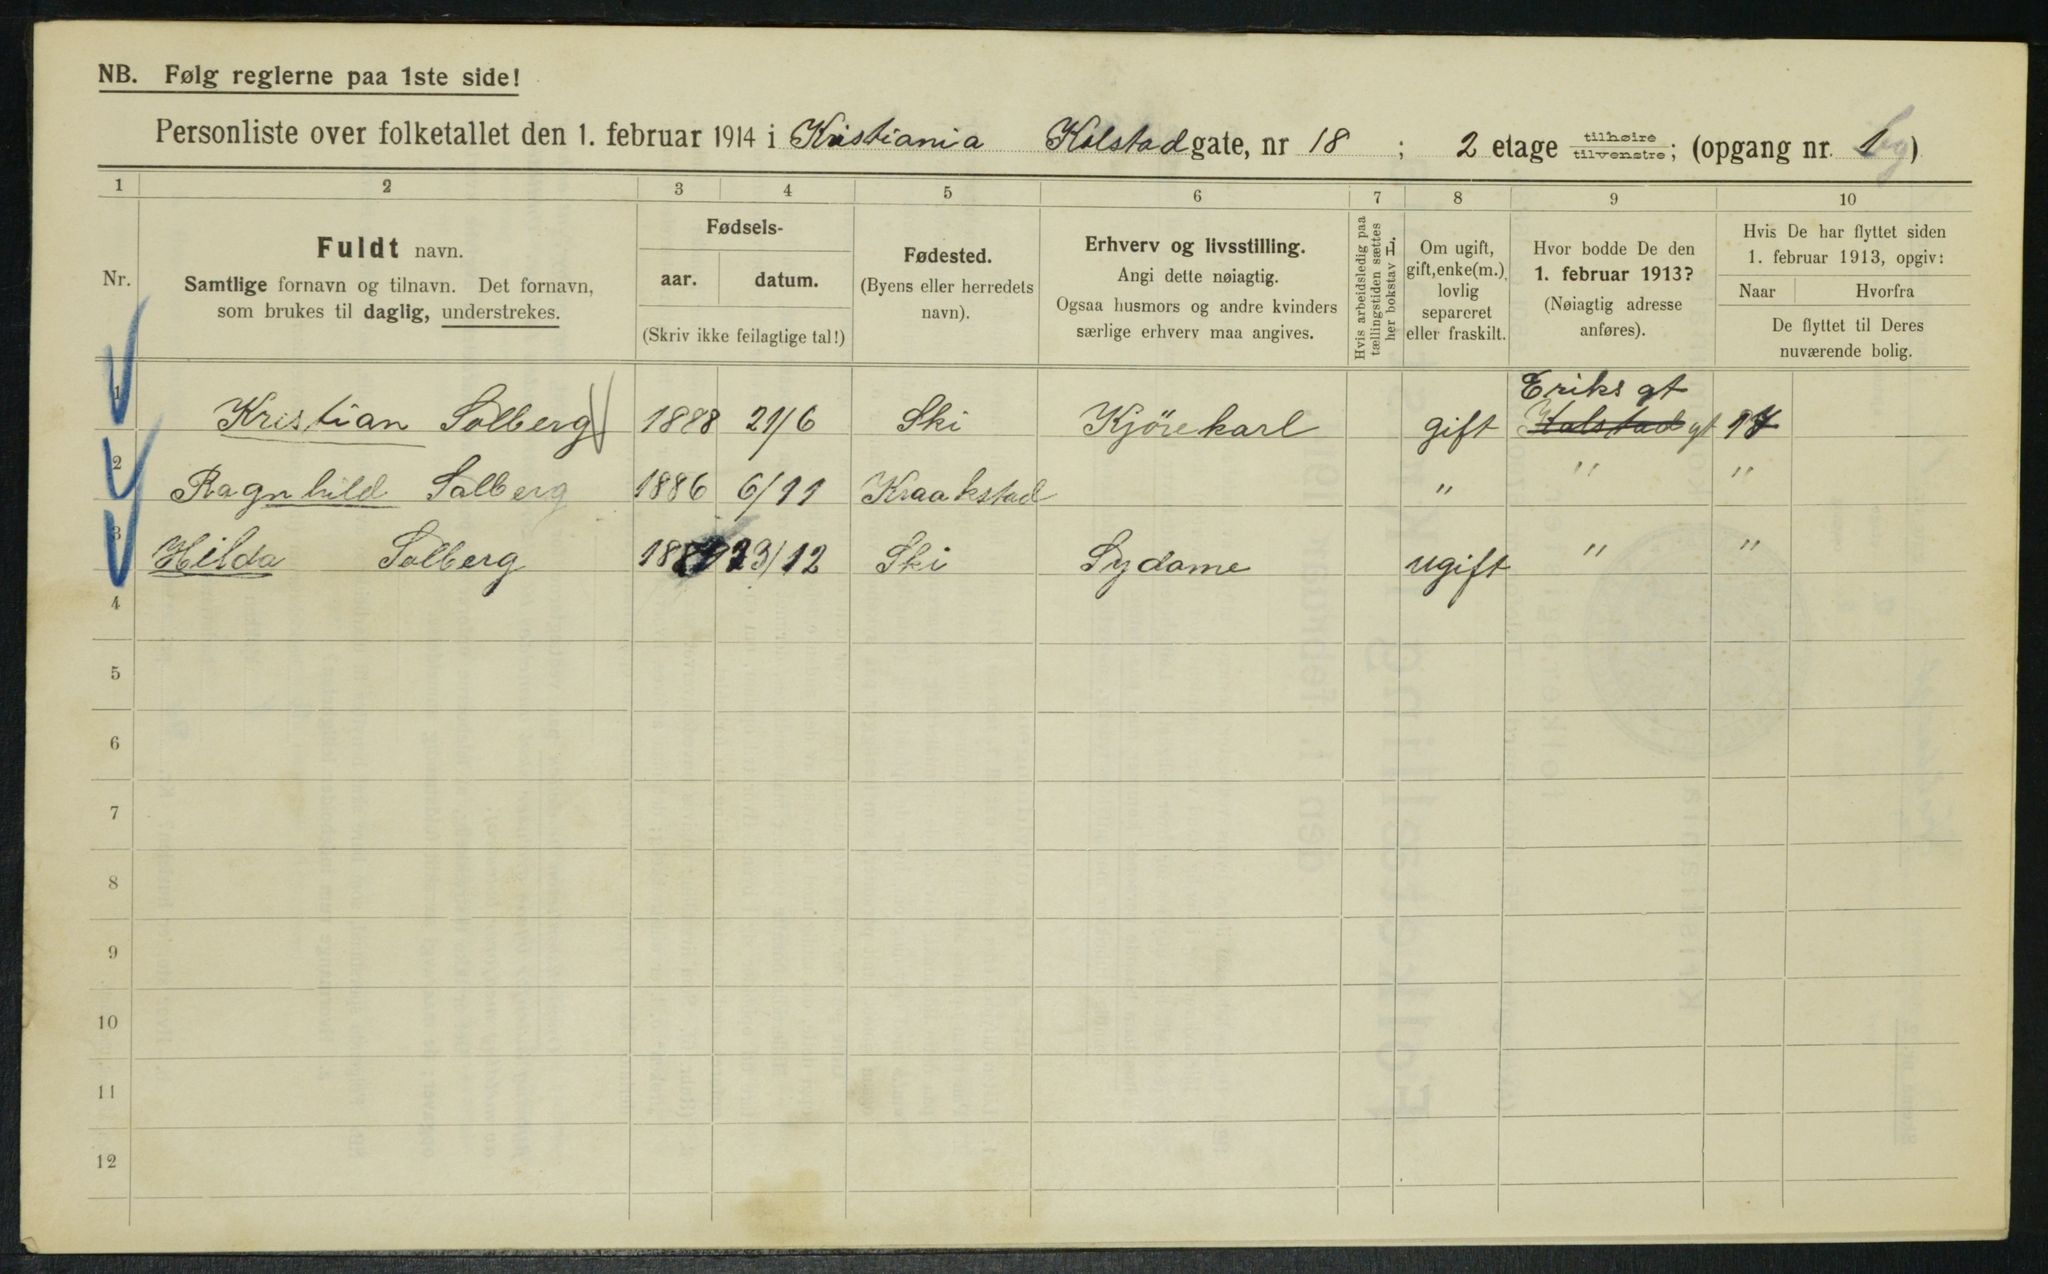 NB. Følg reglerne paa 1ste side!
Personliste over folketallet den 1. februar 1914 i Kristiania Kolstad gate, nr 18 ; 2 etage tilhøire tilvenstre; (opgang nr. 1)
1 2 3 4 5 6 7 8 9 10
Nr.
Fuldt navn.
Samtlige fornavn og tilnavn. Det fornavn,
som brukes til daglig, understrekes.
Fødsels-
aar. datum.
(Skriv ikke feilagtige tal!)
Fødested.
(Byens eller herredets
navn).
Erhverv og livsstilling.
Angi dette nøiagtig.
Ogsaa husmors og andre kvinders
særlige erhverv maa angives.
Hvis arbeidsledig paa
tællingstiden sættes
her bokstav L.
Om ugift,
gift, enke(m.),
lovlig
separeret
eller fraskilt.
Hvor bodde De den
1. februar 1913?
(Nøiagtig adresse
anføres).
Hvis De har flyttet siden
1. februar 1913, opgiv:
Naar Hvorfra
De flyttet til Deres
nuværende bolig.
Eriks gt
1 Kristian Solberg 1888 21/6 Ski Kjörekarl gift Kolstad gt 17
2 Ragnhild Solberg 1886 6/11 Kraakstad " " "
3 Hilda Solberg 23/12 Ski Sydame ugift " "
4
5
6
7
8
9
10
11
12